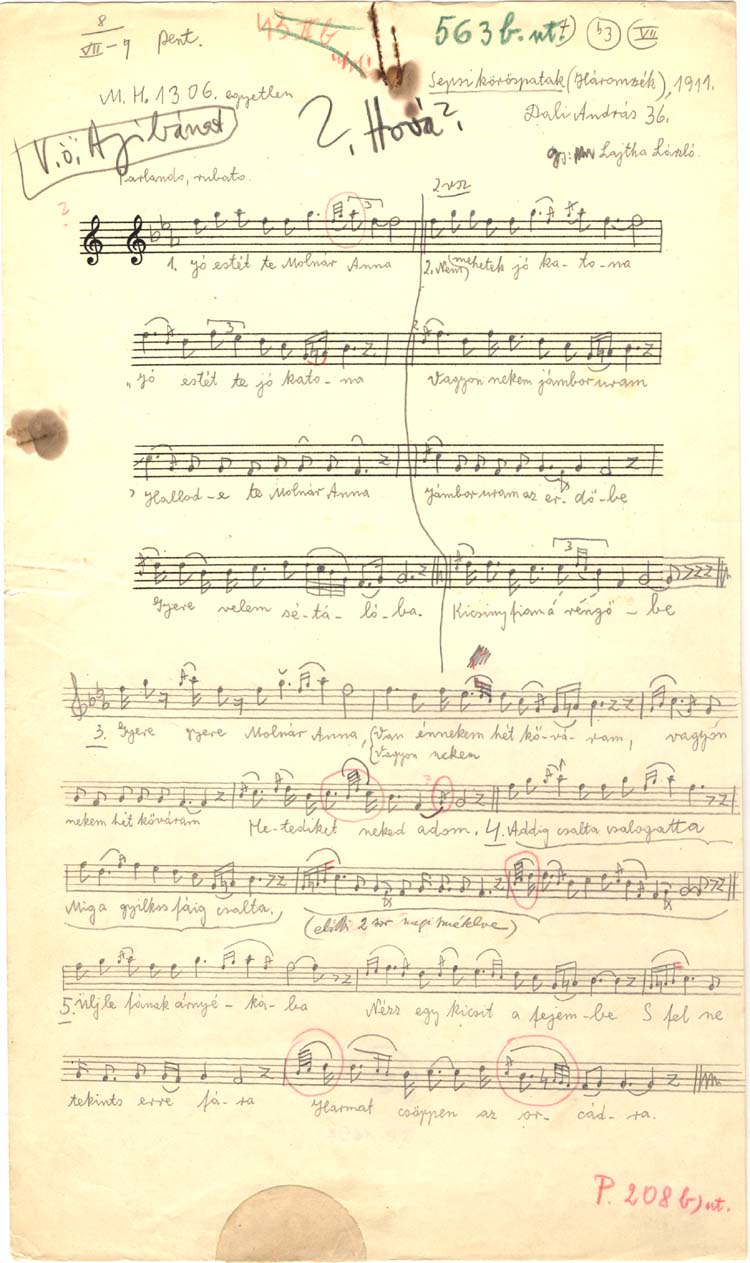 8
VII-7 pent.
563 b. ut. 53 VII
Sepsi köröspatak (Háromszék), 1911.
M. H. 1306. egyetlen
Dali András 36.
V.ö. Ajíbánat
?. Hová?.
gy: Lajtha László.
Parlando, rubato.
2 vsz
1. Jó estét te Molnár Anna
2. Nem mehetek jó ka-to-na
Jó estét te jó kato-na
Vagyon nekem jámbor uram
Hallod-e te Molnár Anna
Jámbor uram az er-dő-be
Gyere velem sé-tá-ló-ba.
Kicsiny fiam á réngő-be
3. Gyere gyere Molnár Anna, Van énnekem hét kő-vá-ram, vagyón
Vagyon nekem
nekem hét kőváram
He-tediket neked adom. 4. Addig csalta csalogatta
Míg a gyilkos fáig csalta.
(előbbi 2 sor megismételve)
5. Ülj le fának árnyé-ká-ba Nézz egy kicsit a fejem-be S fel ne
tekints erre fá-ra Harmat csöppen az or-cád-ra.
P. 208 b) ut.